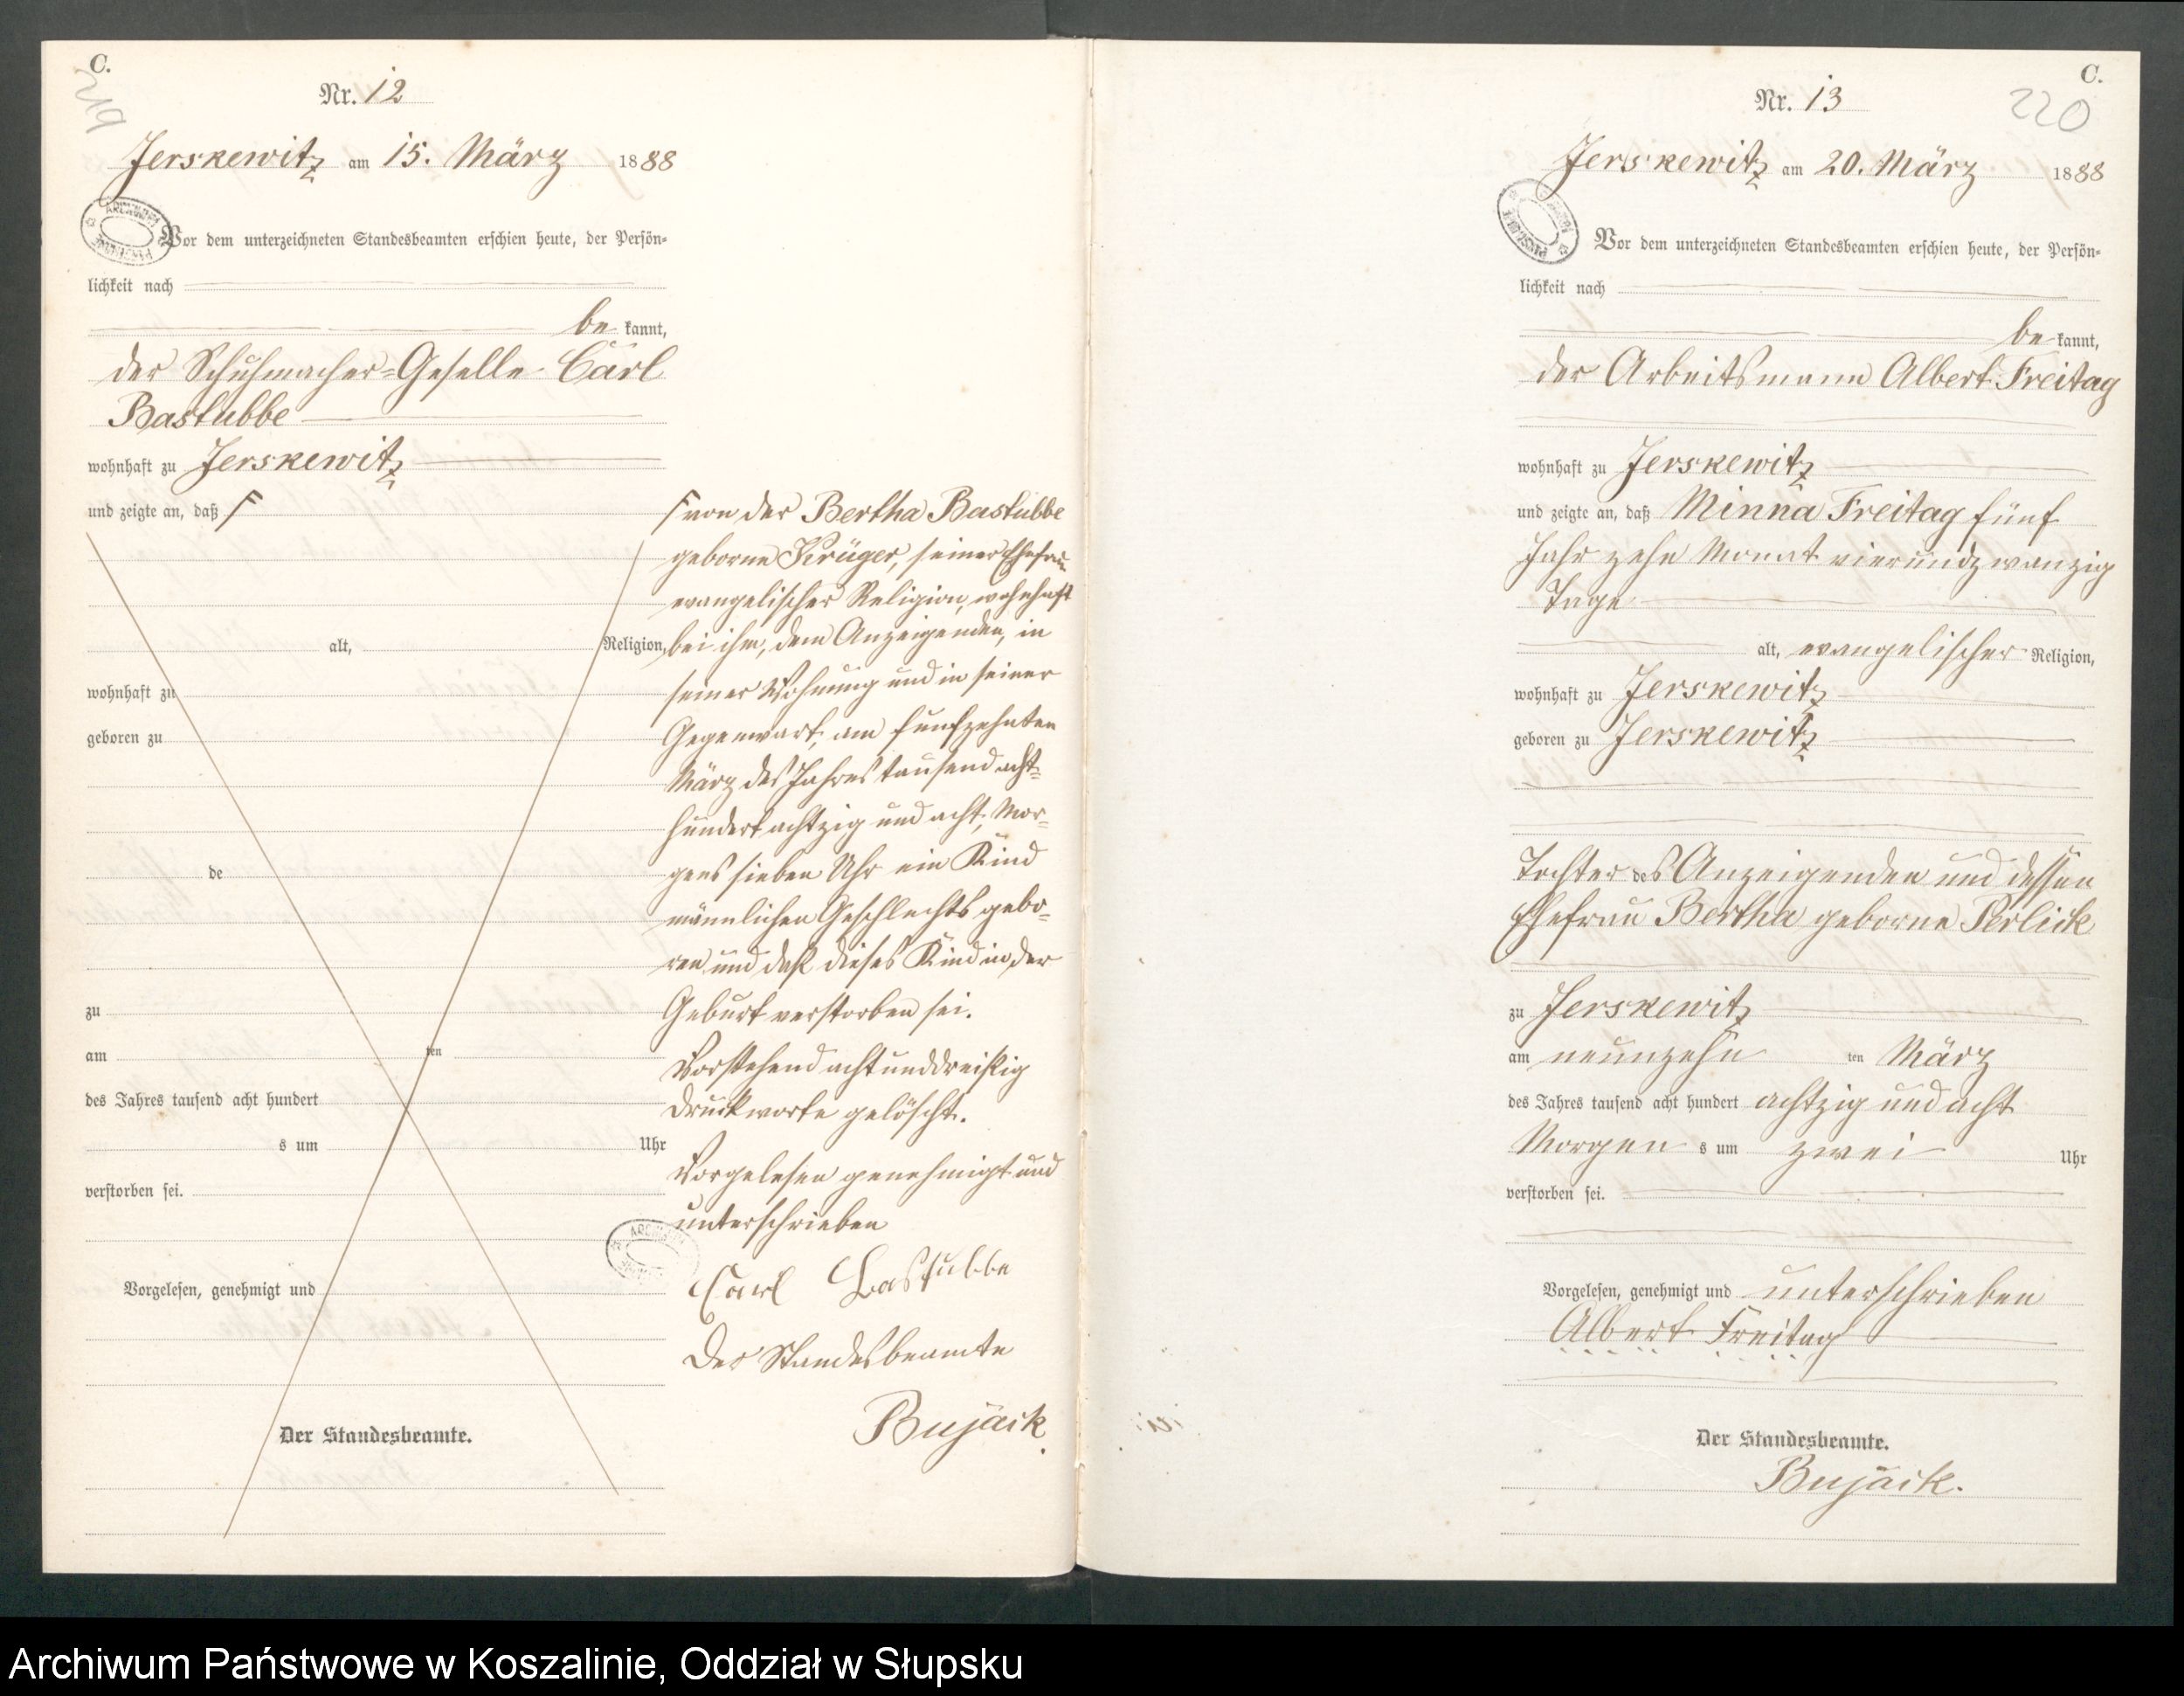 C.
219
Nr. 12
Jerskewitz am 15. März 1888
Vor dem unterzeichneten Standesbeamten erschien heute, der Persön-
lichkeit nach
be kannt,
der Schuhmacher-Geselle Carl
Bastubbe
wohnhaft zu Jerskewitz
und zeigte an, daß
alt, Religion,
wohnhaft zu
geboren zu
de
zu
am ten
des Jahres tausend acht hundert
s um Uhr
verstorben sei.
Vorgelesen, genehmigt und
Der Standesbeamte.
von der Bertha Bastubbe
geborne Krüger, seiner Ehefrau
evangelischer Religion, wohnhaft
bei ihm, dem Anzeigenden, in
seiner Wohnung und in seiner
Gegenwart, am funfzehnten
März des Jahres tausend acht-
hundert achtzig und acht, Mor-
gens sieben Uhr ein Kind
männlichen Geschlechts gebo-
ren und daß dieses Kind in der
Geburt verstorben sei.
Vorstehend achtunddreißig
Druckworte gelöscht.
Vorgelesen genehmigt und
unterschrieben
Carl Bastubbe
Der Standesbeamte
Bujack
C.
220
Nr. 13
Jerskewitz am 20. März 1888
Vor dem unterzeichneten Standesbeamten erschien heute, der Persön-
lichkeit nach
be kannt,
der Arbeitsmann Albert Freitag
wohnhaft zu Jerskewitz
und zeigte an, daß Minna Freitag fünf
Jahr zehn Monat vierundzwanzig
Tage
alt, evangelischer Religion,
wohnhaft zu Jerskewitz
geboren zu Jerskewitz
Tochter des Anzeigenden und dessen
Ehefrau Bertha geborne Perlick
zu Jerskewitz
am neunzehn ten März
des Jahres tausend acht hundert achtzig und acht
Morgen s um zwei Uhr
verstorben sei.
Vorgelesen, genehmigt und unterschrieben
Albert Freitag
Der Standesbeamte.
Bujack.
Archiwum Państwowe w Koszalinie, Oddział w Słupsku